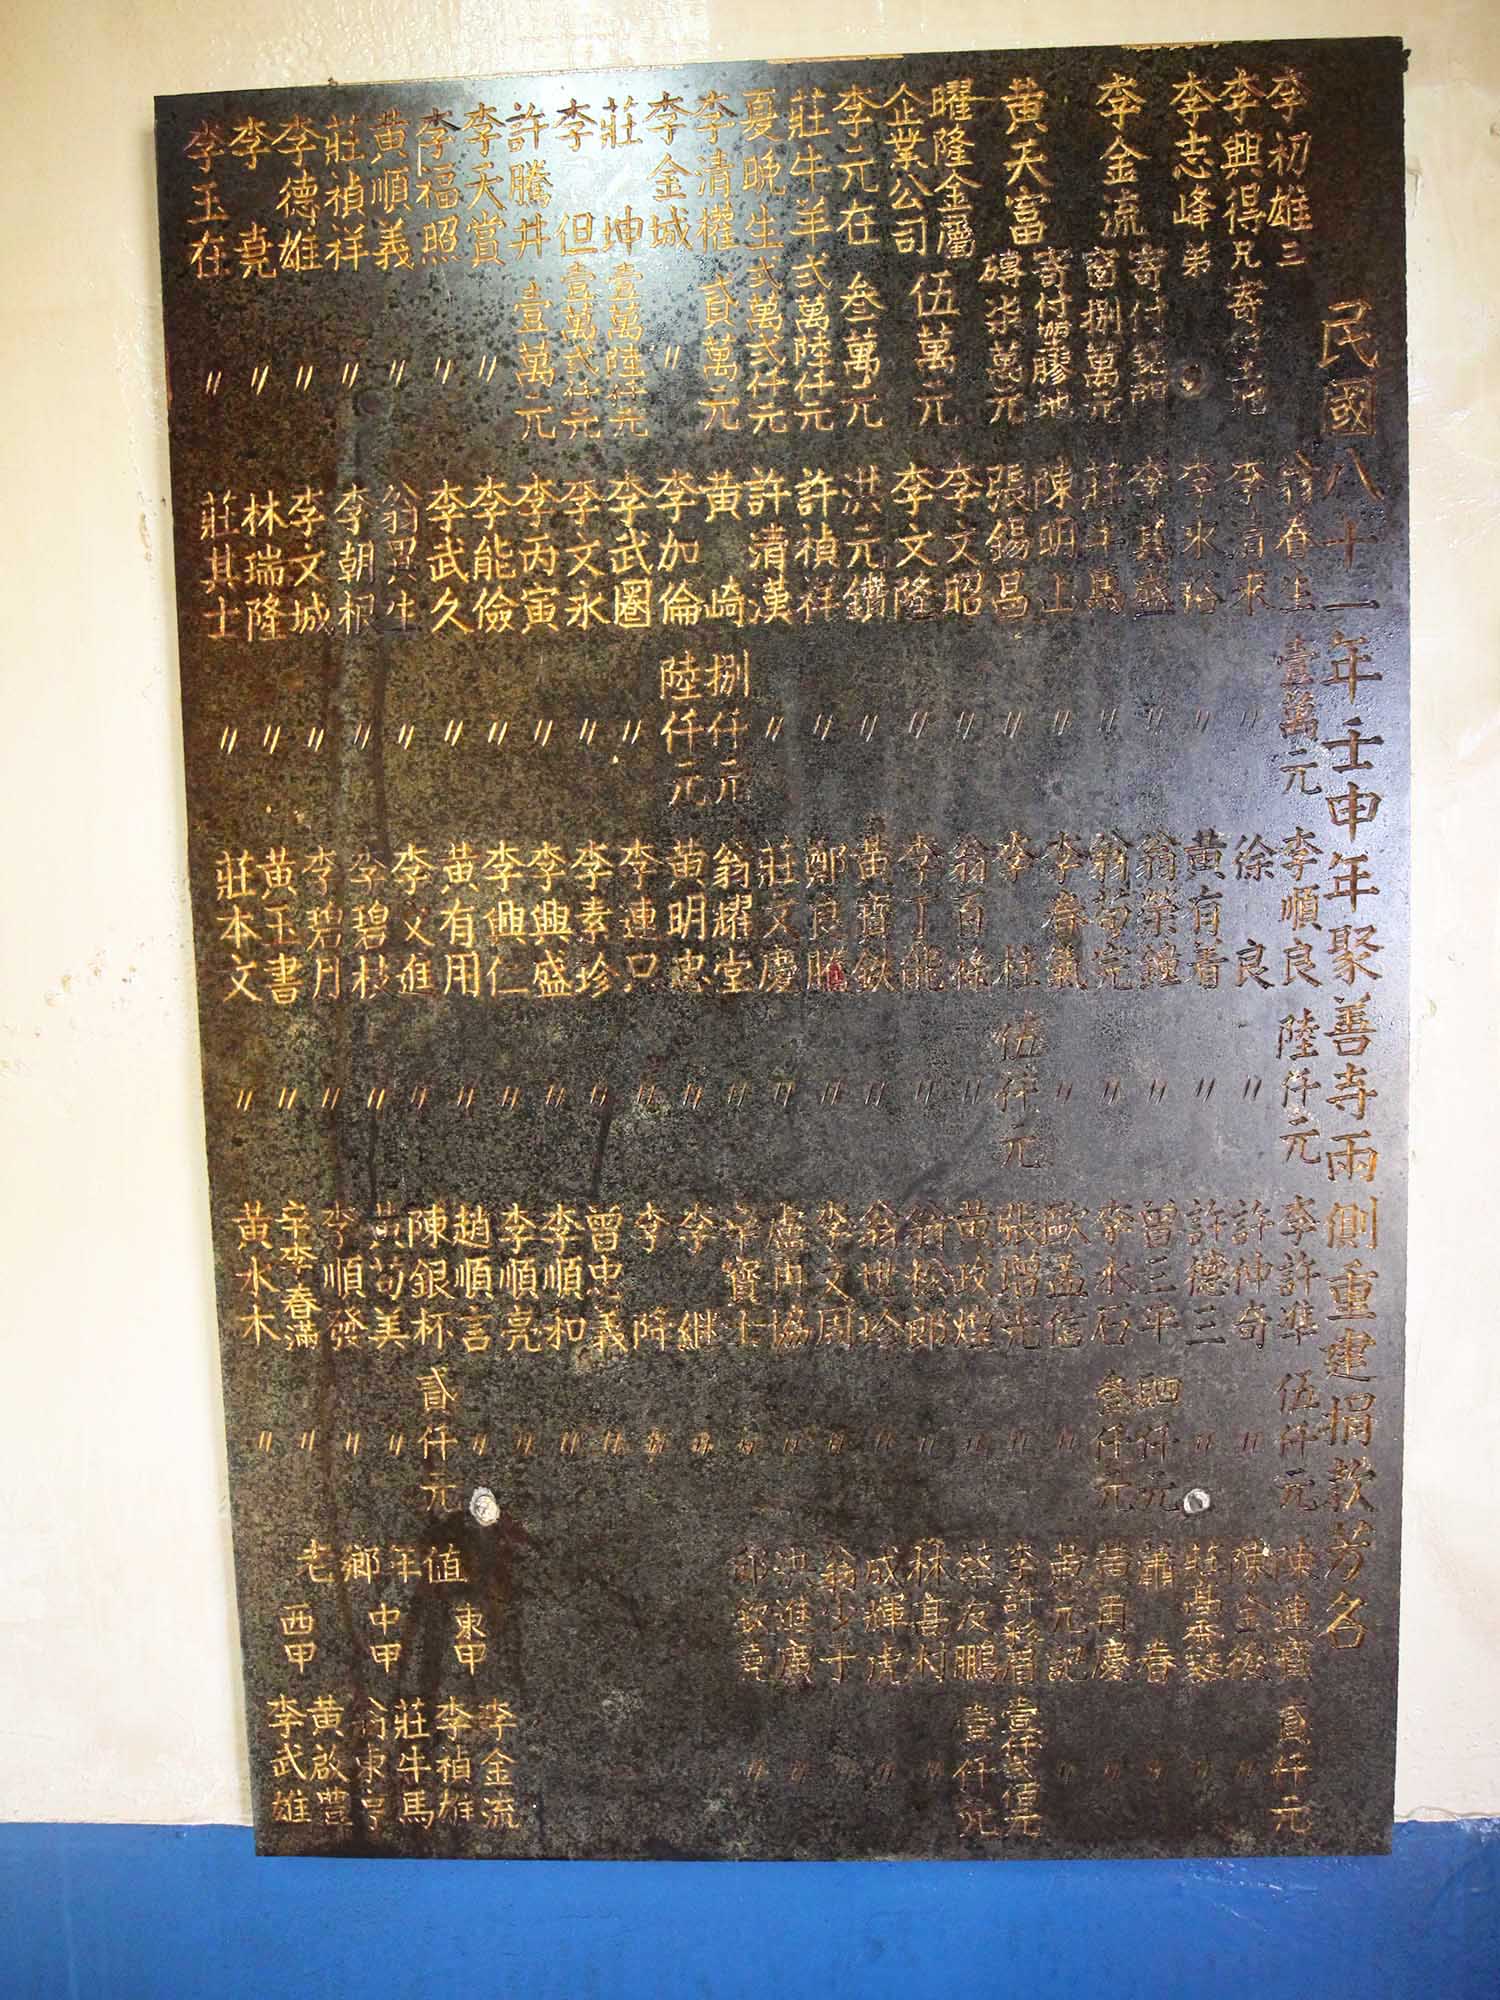 民國八十一年壬申年聚善寺兩側重建捐款芳名
李初雄三
李興得兄寄付
李志峰弟
李金流寄付
窗捌萬元
黃天富寄付塑膠地
磚柒萬元
曜隆金屬
企業公司伍萬元
李元在叁萬元
莊牛羊弍萬陸仟元
夏晚生弍萬弍仟元
李清權貳萬元
李金城〃
莊坤壹萬陸仟元
李但壹萬弍仟元
許騰井壹萬元
李天賞〃
李福照〃
黃順義〃
莊禎祥〃
李德雄〃
李堯〃
李玉在〃
翁春生壹萬元
李清來〃
李水裕〃
李其盛〃
莊牛馬〃
陳明上〃
張錫昌〃
李文昭〃
李文隆〃
洪元鑽〃
許禎祥〃
許清漢〃
黃崎捌仟元
李加倫陸仟元
李武圈〃
李文永〃
李丙寅〃
李能儉〃
李武久〃
翁異生〃
李朝根〃
李文城〃
林瑞隆〃
莊其士〃
李順良陸仟元
徐良〃
黃有着〃
翁榮鐘〃
翁苟完〃
李春氣〃
李柱伍仟元
翁百祿〃
李丁能〃
黃寶欽〃
鄭良騰〃
莊文慶〃
翁耀堂〃
黃明忠〃
李連只〃
李素珍〃
李興盛〃
李興仁〃
黃有用〃
李文進〃
李碧枝〃
李碧月〃
黃玉書〃
莊本文〃
李許準伍仟元
許仲奇〃
許德三〃
曾三平肆仟元
李水石叁仟元
歐孟信〃
張增光〃
黃政煌〃
翁松郎〃
翁世珍〃
李文周〃
盧田協〃
辛寶士〃
李継〃
李降〃
曾忠義〃
李順和〃
李順亮〃
趙順言〃
陳銀杯貳仟元
黃苟美〃
李順發〃
辛李春滿〃
黃水木〃
陳連寶貳仟元
陳金後〃
莊高香琴〃
蕭春〃
黃再慶〃
黃元記〃
李許彩眉壹仟弍佰元
蔡友鵬壹仟元
林喜村〃
成輝虎〃
翁少于〃
洪進廣〃
邱欽堯〃
值年鄉老
東甲李金流
李禎雄
中甲莊牛馬
翁東亨
西甲黃啟豐
李武雄